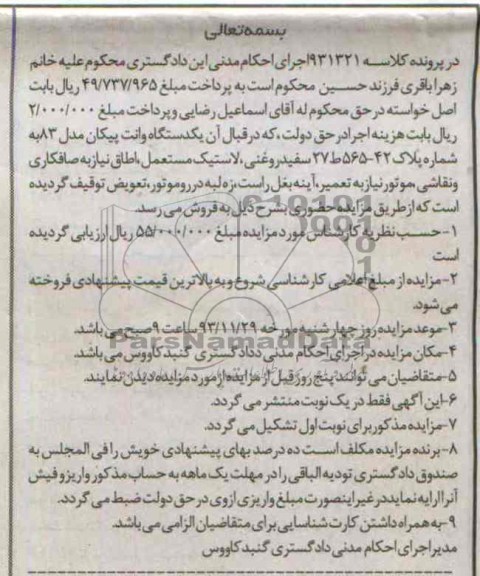 بسمه‌تعالی
در پرونده کلاسه ۹۳۱۳۲۱اجرای احکام مدنی این دادگستری محکوم علیه خانم
زهرا باقری فرزند حسین محکوم است به پرداخت مبلغ ۴۹/۷۳۷/۹۶۵ ریال بابت
اصل خواسته در حق محکوم له آقای اسماعیل رضایی و پرداخت مبلغ ۲/۰۰۰/۰۰۰
ریال بابت هزینه اجرا در حق دولت ، که در قبال آن یکدستگاه وانت پیکان مدل ۸۳به
شماره پلاک ۴۲-۵۶۵ط۲۷ سفید روغنی ، لاستیک مستعمل ، اطاق نیاز به صافکاری
و نقاشی ، موتور نیاز به تعمیر، آینه بغل راست ، زه لبه در رو موتور ، تعویض توقیف گردیده
است که از طریق مزایده حضوری بشرح ذیل به فروش می رسد.
۱-حسب نظریه کارشناس مورد مزایده مبلغ ۵۵/۰۰۰/۰۰۰ ریال ارزیابی گردیده
است
۲-مزایده از مبلغ اعلامی کارشناسی شروع و به بالاترین قیمت پیشنهادی فروخته
می شود.
۳-موعد مزایده روز چهارشنبه مورخه ۹۳/۱۱/۲۹ ساعت ۹ صبح می باشد.
۴-مکان مزایده در اجرای احکام مدنی ددادگستری گنبد کاووس می باشد.
۵-متقاضیان می توانند پنج روز قبل از مزایده از مورد مزایده دیدن نمایند.
۶-این آگهی فقط در یک نوبت منتشر می گردد.
۷-مزایده مذکور برای نوبت اول تشکیل می گردد.
۸-برنده مزایده مکلف است ده درصد بهای پیشنهادی خویش را فی المجلس به
صندوق دادگستری تودیع الباقی را در مهلت یک ماهه به حساب مذکور واریز و فیش
آنرا ارایه نماید در غیر اینصورت مبلغ واریزی از وی در حق دولت ضبط می گردد.
۹-به همراه داشتن کارت شناسایی برای متقاضیان الزامی می باشد.
مدیر اجرای احکام مدنی دادگستری گنبد کاووس
ParsNamadData